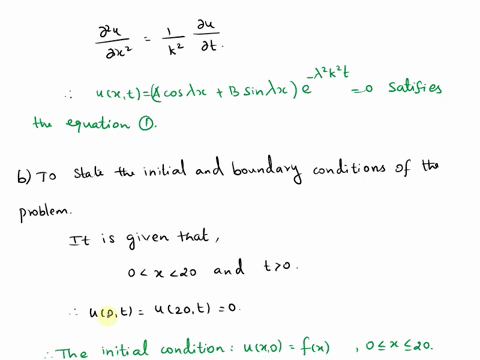 ∂²u/∂x² = 1/k² ∂u/∂t.
∴ u(x,t) = (A cosλx + B sinλx) e^(-λ²k²t) = 0 satisfies
the equation ①.
b) To state the initial and boundary conditions of the
problem.
It is given that,
0 < x < 20 and t > 0.
∴ u(0,t) = u(20,t) = 0.
∴ The initial condition: u(x,0) = f(x) , 0 ≤ x ≤ 20.